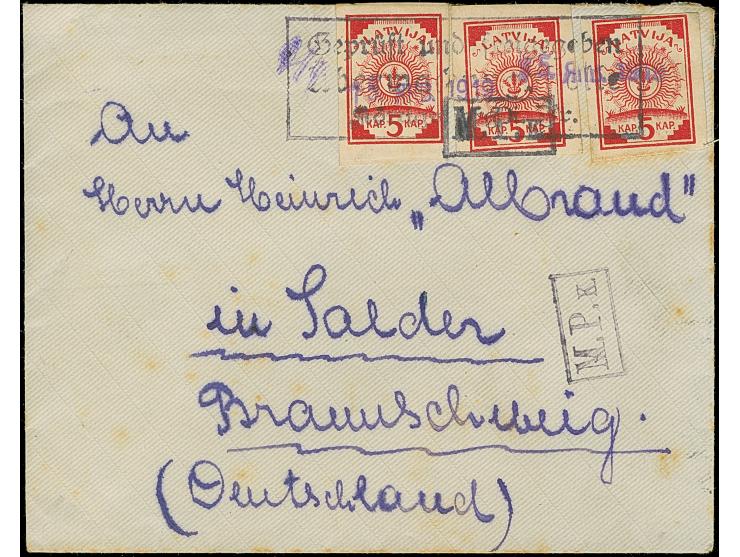 LATVIJA LATVIJA LATVIJA
Geprüft und
1919
KAP. 5 KAP. KAP. 5 KAP. KAP. 5 KAP.
An
Herrn Heinrich „Albrand"
in Salder
M.P.K.
Braunschweig.
(Deutschland)